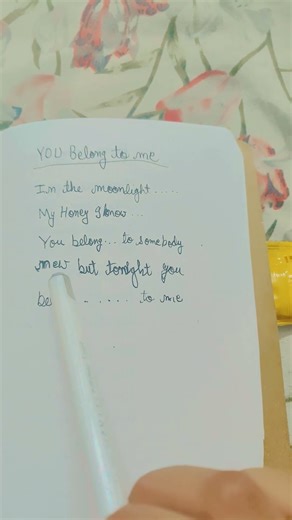 YOU Belong to me
In the moonlight ....
My Honey I know ...
You belong ... to somebody
new but tonight you
be . . . . . . to me